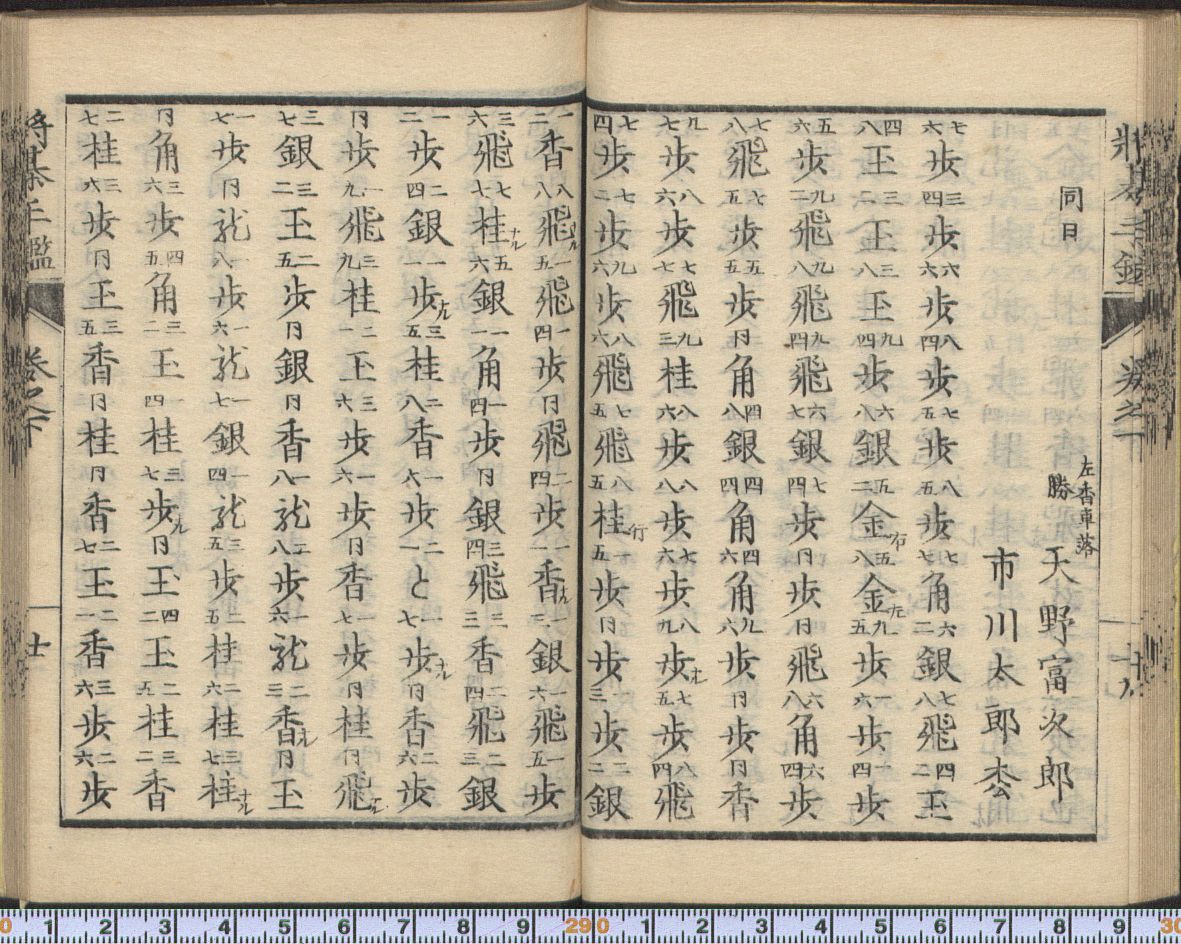 將棊手鑑　巻之下
同日
左香車落
勝　天野富次郎
市川太郎松
七六歩 三四歩 六六歩 八四歩 七五歩 八五歩 七七角 六二銀 七八飛 四二玉
四八玉 三二玉 三八玉 九四歩 六八銀 五二金行 五八金左 九五歩 一六歩 一四歩
五六歩 九二飛 九八飛 九四飛 六七銀 七四歩 同歩 同飛 六八角 六四歩
七八飛 七五歩 五五歩 同角 四八銀 四四角 四六角 九六歩 同歩 同香
九七歩 八六歩 七七飛 九三桂 八六歩 八八歩 七六歩 八九歩ナル 七五歩 八四飛
七四歩 七二歩 九六歩 八六飛 七五飛 八五桂行 一五歩 同歩 一三歩 二二銀
一二香 八八飛ナル 一五飛 一四歩 同飛 二四歩 一一香ナル 三一銀 一六飛 一五歩
三六飛 七七桂ナル 五六銀 一一角 一四歩 同銀 三四飛 三三香 二四飛 二三銀
一二歩 二四銀 一一歩ナル 三五桂 二八香 一六歩 二一と 一七歩ナル 同香 二六歩
同歩 一九飛 三九桂 二一玉 三六歩 一六歩 同香 一七歩 同桂 同飛ナル
三七銀 三二玉 二五歩 同銀 同香 一八龍 二八歩 一六龍 二三香ナル 同玉
一七歩 同龍 一八歩 一六龍 一七銀 一四龍 三五歩 二五桂 二六桂 三七桂ナル
同角 三六歩 四五角 三二玉 一四桂 三七歩ナル 同玉 四二玉 二五桂 三二香
二七桂 三六歩 同玉 三五香 同桂 同香 二七玉 二一香 三六歩 二六歩
將棊手鑑　巻之下
0 1 2 3 4 5 6 7 8 9 29 0 1 2 3 4 5 6 7 8 9 30